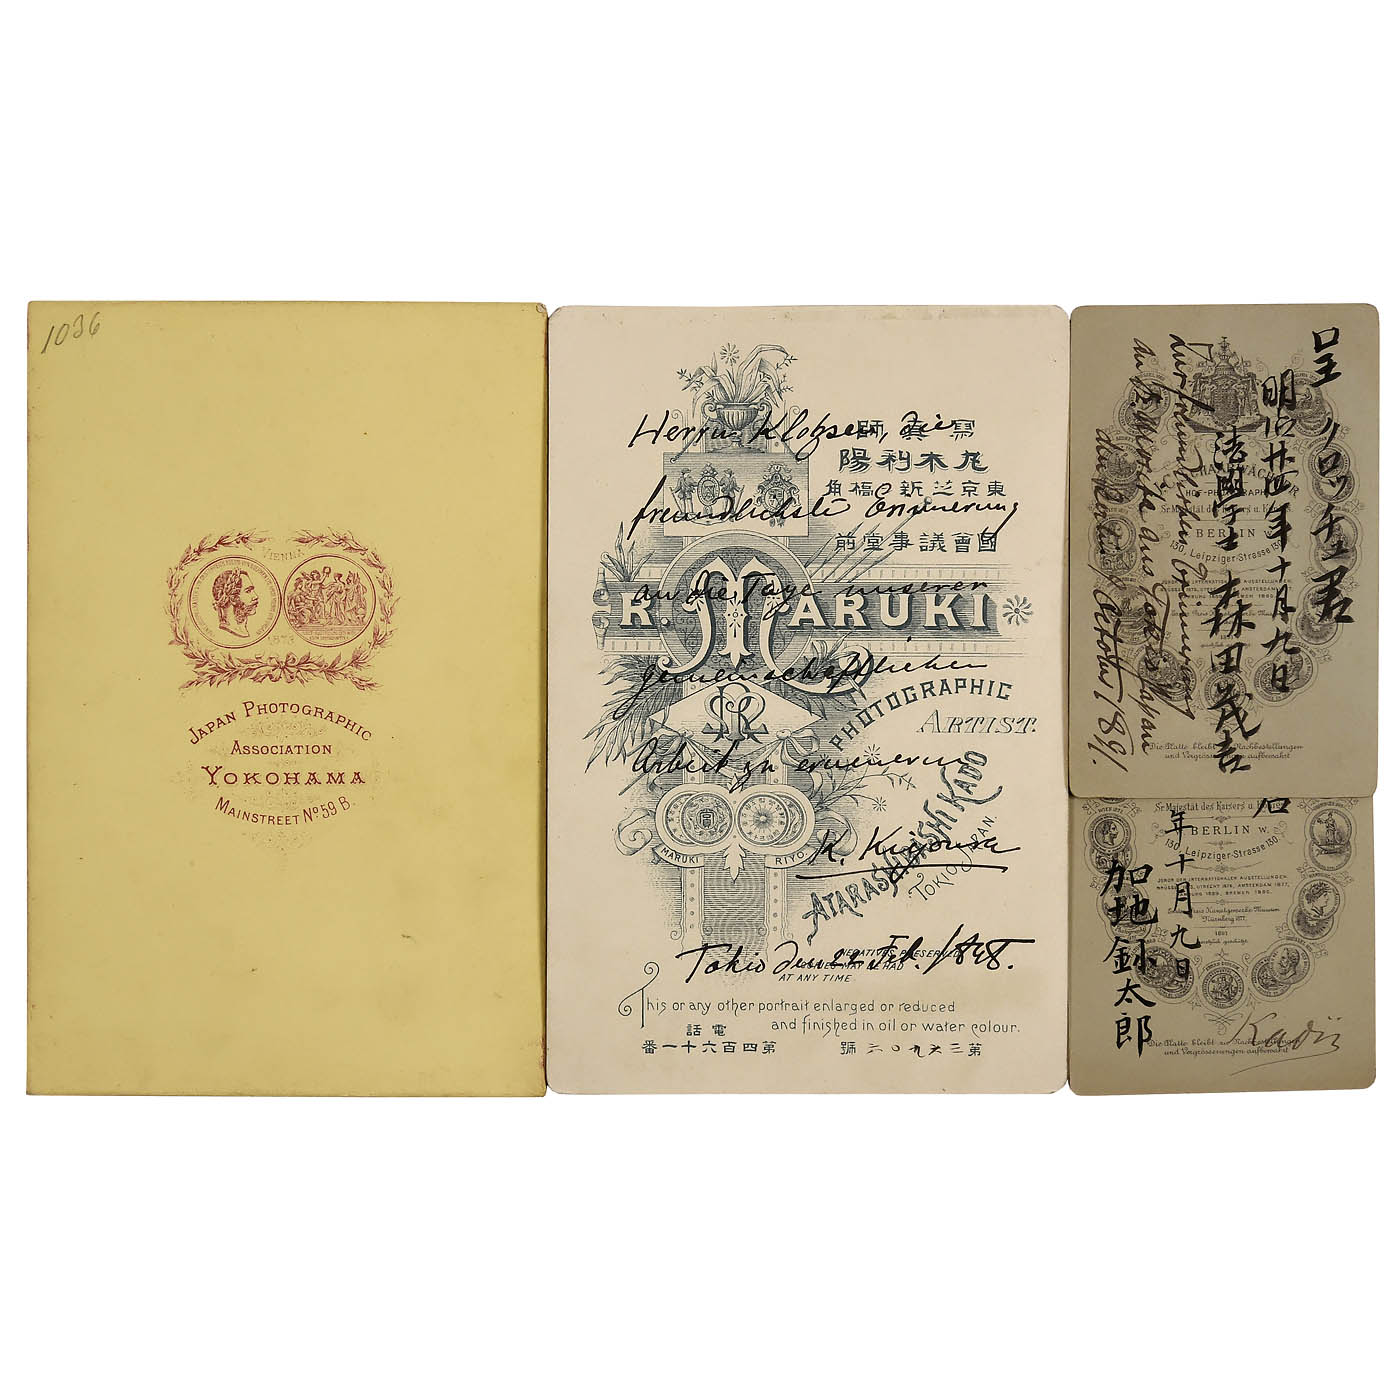 1036
VIENNA
1873
JAPAN PHOTOGRAPHIC
ASSOCIATION
YOKOHAMA
MAINSTREET No. 59 B.
Herrn die
寫真師
丸木利陽
東京芝新橋角
國會議事堂前
freundlichste Erinnerung
an die Tage unserer
R. MARUKI
gemeinschaftlichen
PHOTOGRAPHIC
ARTIST.
Arbeit zu erneuern
ATARASHIBASHI KADO
TOKIO JAPAN.
MARUKI RIYO.
K.
Tokio den 22 Feb. 1898.
NEGATIVES PRESERVED
COPIES MAY BE HAD
AT ANY TIME.
This or any other portrait enlarged or reduced
and finished in oil or water colour.
電話
第四百六十一番
號
呈 クロッチェ君
明治廿四年十月九日
法學士 森田茂吉
Zur freundlichen Erinnerung
an S. Morita aus Tokio Japan
den October 1891.
HOF-PHOTOGRAPH
Sr. Majestät des Kaisers u. Königs.
BERLIN W.
130, Leipziger-Strasse 130.
Die Platte bleibt für Nachbestellungen
und Vergrösserungen aufbewahrt
君
年十月九日
加地鉌太郎
Sr. Majestät des Kaisers u. Königs.
BERLIN W.
130, Leipziger-Strasse 130.
JUROR DER INTERNATIONALEN AUSSTELLUNGEN
BRÜSSEL 1875, UTRECHT 1876, AMSTERDAM 1877,
1889, BREMEN 1890.
Nürnberg 1877.
1891
Die Platte bleibt zu Nachbestellungen
und Vergrösserungen aufbewahrt